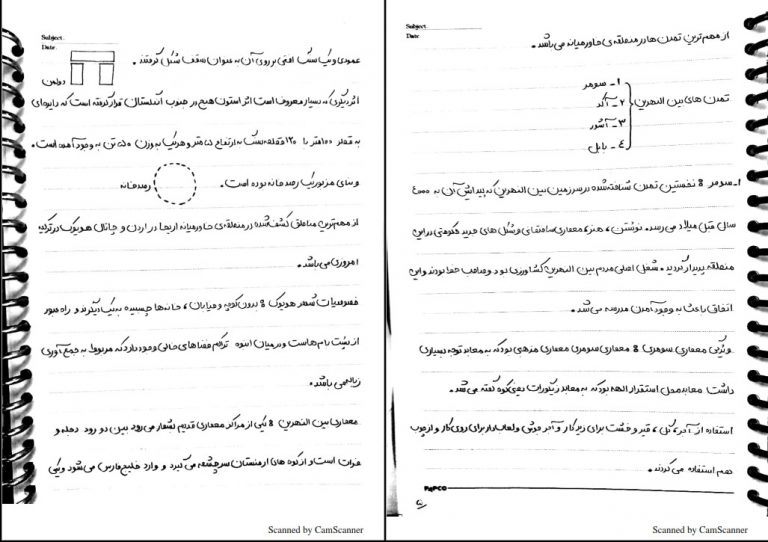 Subject:
Date
عمودی و یک سنگ افقی بر روی آن به عنوان سقف شکل گرفتند .
دولمن
اثر دیگری که بسیار معروف است اثر استون هنج در جنوب انگلستان قرار گرفته است که دایره‌ای
به قطر ۱۰۰ متر با ۱۲۰ قطعه سنگ به ارتفاع ۵ متر و هر یک به وزن ۵۰ تن به وجود آمده است .
و بنای مزبور یک رصد خانه بوده است .
رصدخانه
از مهم‌ترین مناطق کشف شده در منطقه‌ی خاورمیانه اریحا در اردن و چاتال هویوک در ترکیه
امروزی می‌باشد .
خصوصیات شهر هویوک : بدون کوچه و خیابان ، خانه‌ها چسبیده به یک دیگرند و راه عبور
از پشت بام هاست و در میان انبوه تراکم فضاهای خالی وجود دارد که مربوط به جمع آوری
زباله می باشد .
معماری بین النهرین : یکی از مراکز معماری قدیم بشمار می‌رود بین دو رود دجله و
فرات است و از کوه های ارمنستان سرچشمه می گیرد و وارد خلیج فارس می شود و یکی
Scanned by CamScanner
Subject:
Date
از مهم ترین تمدن ها در منطقه ی خاورمیانه می باشد .
تمدن های بین النهرین
۱- سومر
۲- آکد
۳- آشور
۴- بابل
۱- سومر : نخستین تمدن شناخته شده در سرزمین بین النهرین که پیدایش آن به ۴۰۰۰
سال قبل میلاد می رسد . نوشتن ، هنر ، معماری ساختمان و شکل های جدید حکومتی در این
منطقه پدیدار گردید . شغل اصلی مردم بین النهرین کشاورزی بود و صاحب خط بودند و این
اتفاق باعث به وجود آمدن مدرسه می شد .
ویژگی معماری سومری : معماری سومری معماری مذهبی بود که به معابد توجه بسیاری
داشت معابد محل استقرار الهه بود که به معابد زیگورات یعنی کوه گفته می شد .
استفاده از آجر ، گل ، قیر و خشت برای زیر کار و آجر پزی و لعاب دار برای روی کار و از چوب
هم استفاده می کردند .
PAPCO
Scanned by CamScanner